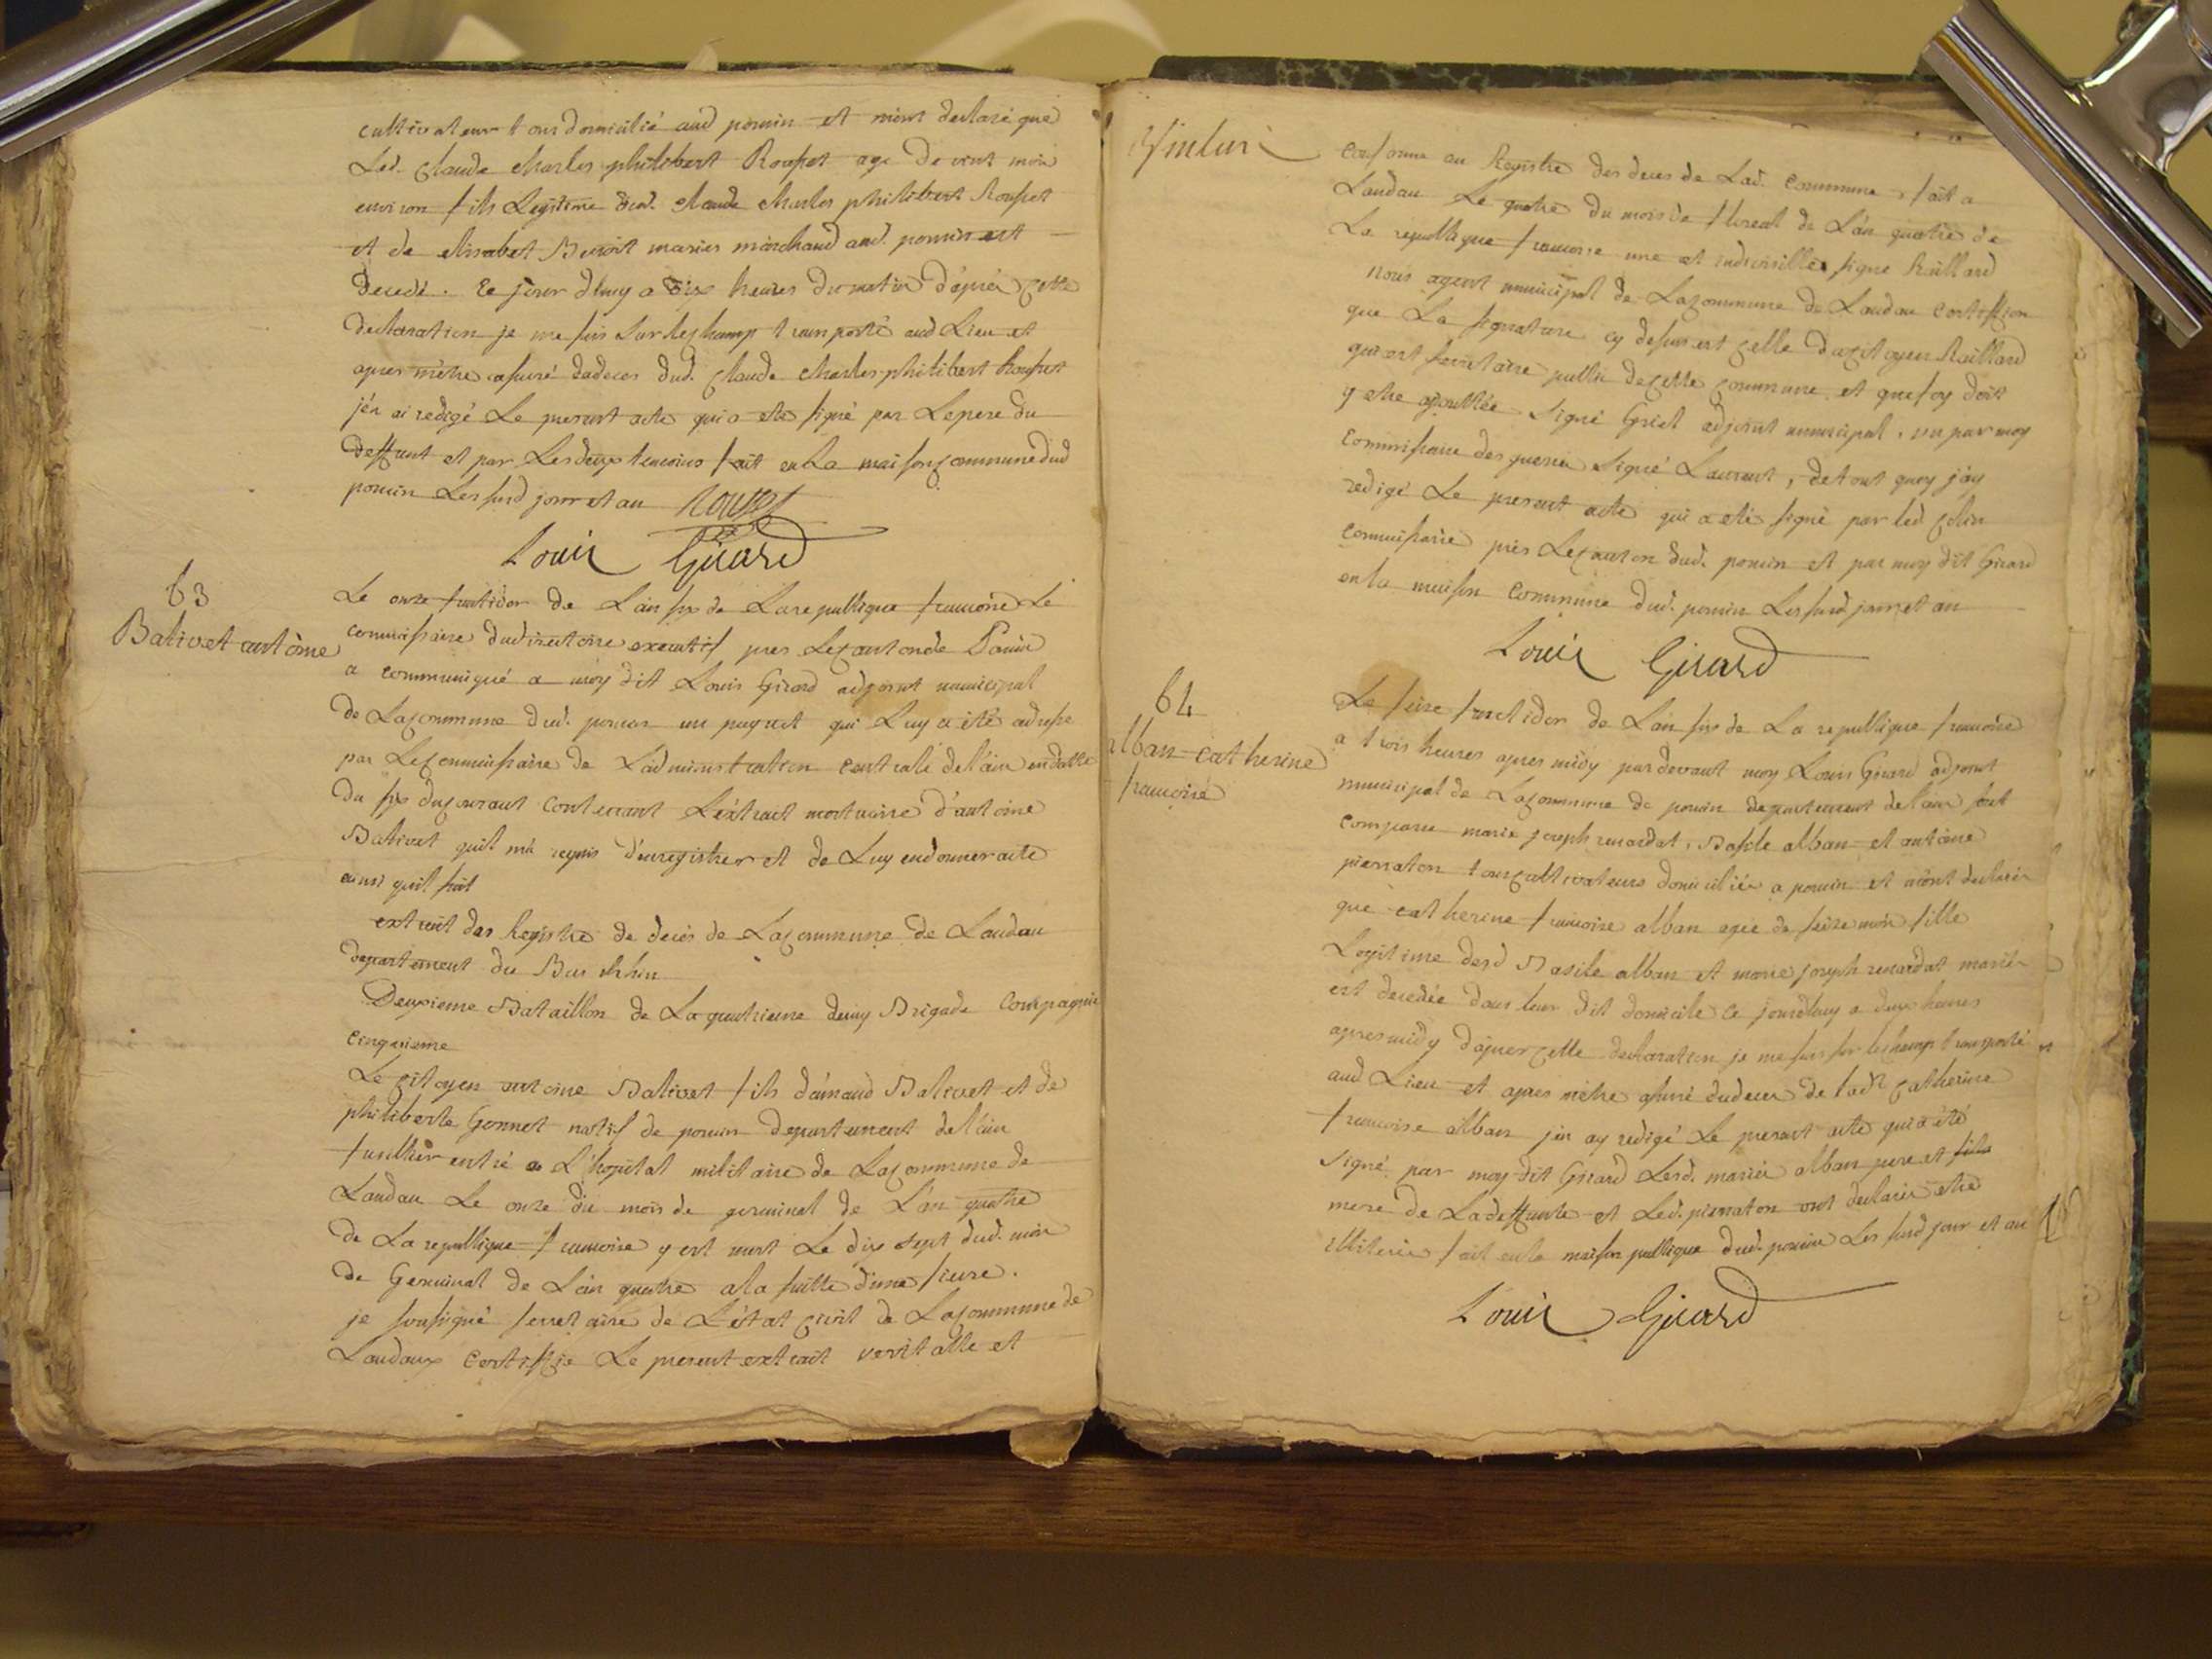 cultivateur tous domicilié aud poncin et m'ont declaré que
Led. Claude charles philibert Rouset age de vint mois
environ fils Legitime dud. claude charles philibert Rouset
et de elisabet Benoit mariés marchand aud. poncin est
decedé. ce jourdhuy a dix heures du matin d'apres cette
declaration je me suis sur lechamp transporté aud Lieu et
apres m'etre assuré dudeces dud. claude charles philibert Rouset
j'en ai redigé Le present acte qui a eté signé par Lepere du
deffunt et par Lesdeux temoins fait en La maison commune dud
poncin Les susd jour et an Rouset
Louis Girard
63
Balivet antoine
Le onze fructidor de L'an six de La republique francoise Le
commissaire dudirectoire executif pres Le canton de Poncin
a communiqué a moy dit Louis Girard adjoint municipal
de La commune dud. poncin un paquet qui Luy a été adressé
par Le commissaire de L'administration centrale de l'ain en datte
du six du courant contenant L'extrait mortuaire d'antoine
Balivet qu'il m'a requis d'enregistrer et de Luy en donner acte
ainsi qu'il suit
extrait des Registre de deces de La commune de Landau
departement du Bas Rhin
Deuxieme Bataillon de La quatrieme demy Brigade Compagnie
cinquieme
Le citoyen antoine Balivet fils d'amand Balivet et de
philiberte Gonnet natif de poncin departement de l'ain
fusillier entré a L'hopital militaire de La commune de
Landau Le onze du mois de germinal de L'an quatre
de La republique francoise y est mort Le dix sept dud. mois
de Germinal de L'an quatre a la suitte d'une fievre.
je sousigné secretaire de L'état civil de La commune de
Landaux certiffie Le present extrait veritable et
conforme au Registre des deces de Lad. commune, fait a
Landau Le quatre du mois de floreal de L'an quatre de
La republique francoise une et indivisible, signé Raillard
nous agent municipal de La commune de Landau certiffion
que La signature cy dessus est celle du citoyen Raillard
qui est secretaire public de cette commune et que foy doit
y etre ajouttée signé Griel adjoint municipal, vu par moy
commissaire des guerres signé Laurent, de tout quoy j'ay
redigé Le present acte qui a eté signé par led Colin
commissaire près Le canton dud. poncin et par moy dit Girard
en la maison commune dud. poncin Les susd jour et an
Louis Girard
64
alban catherine
francoise
Le seize fructidor de L'an six de La republique francoise
a trois heures apres midy pardevant moy Louis Girard adjoint
municipal de La commune de poncin departement de l'ain sont
comparu marie joseph renardat, Basile alban et antoine
pierraton tous cultivateurs domiciliés a poncin et m'ont declaré
que catherine francoise alban agée de seize mois fille
Legitime desd Basile alban et marie joseph renardat mariés
est decedée dans leur dit domicile ce jourdhuy a deux heures
apres midy d'apres cette declaration je me suis sur lechamp transporté
aud Lieu et apres m'etre assuré dudeces de lad. catherine
francoise alban j'en ay redigé Le present acte qui a été
signé par moy dit Girard Lesd. mariés alban pere et
mere de La deffunte et Led. pierraton ont declaré etre
illiteré fait en la maison publique dud. poncin Les susd jour et an
Louis Girard